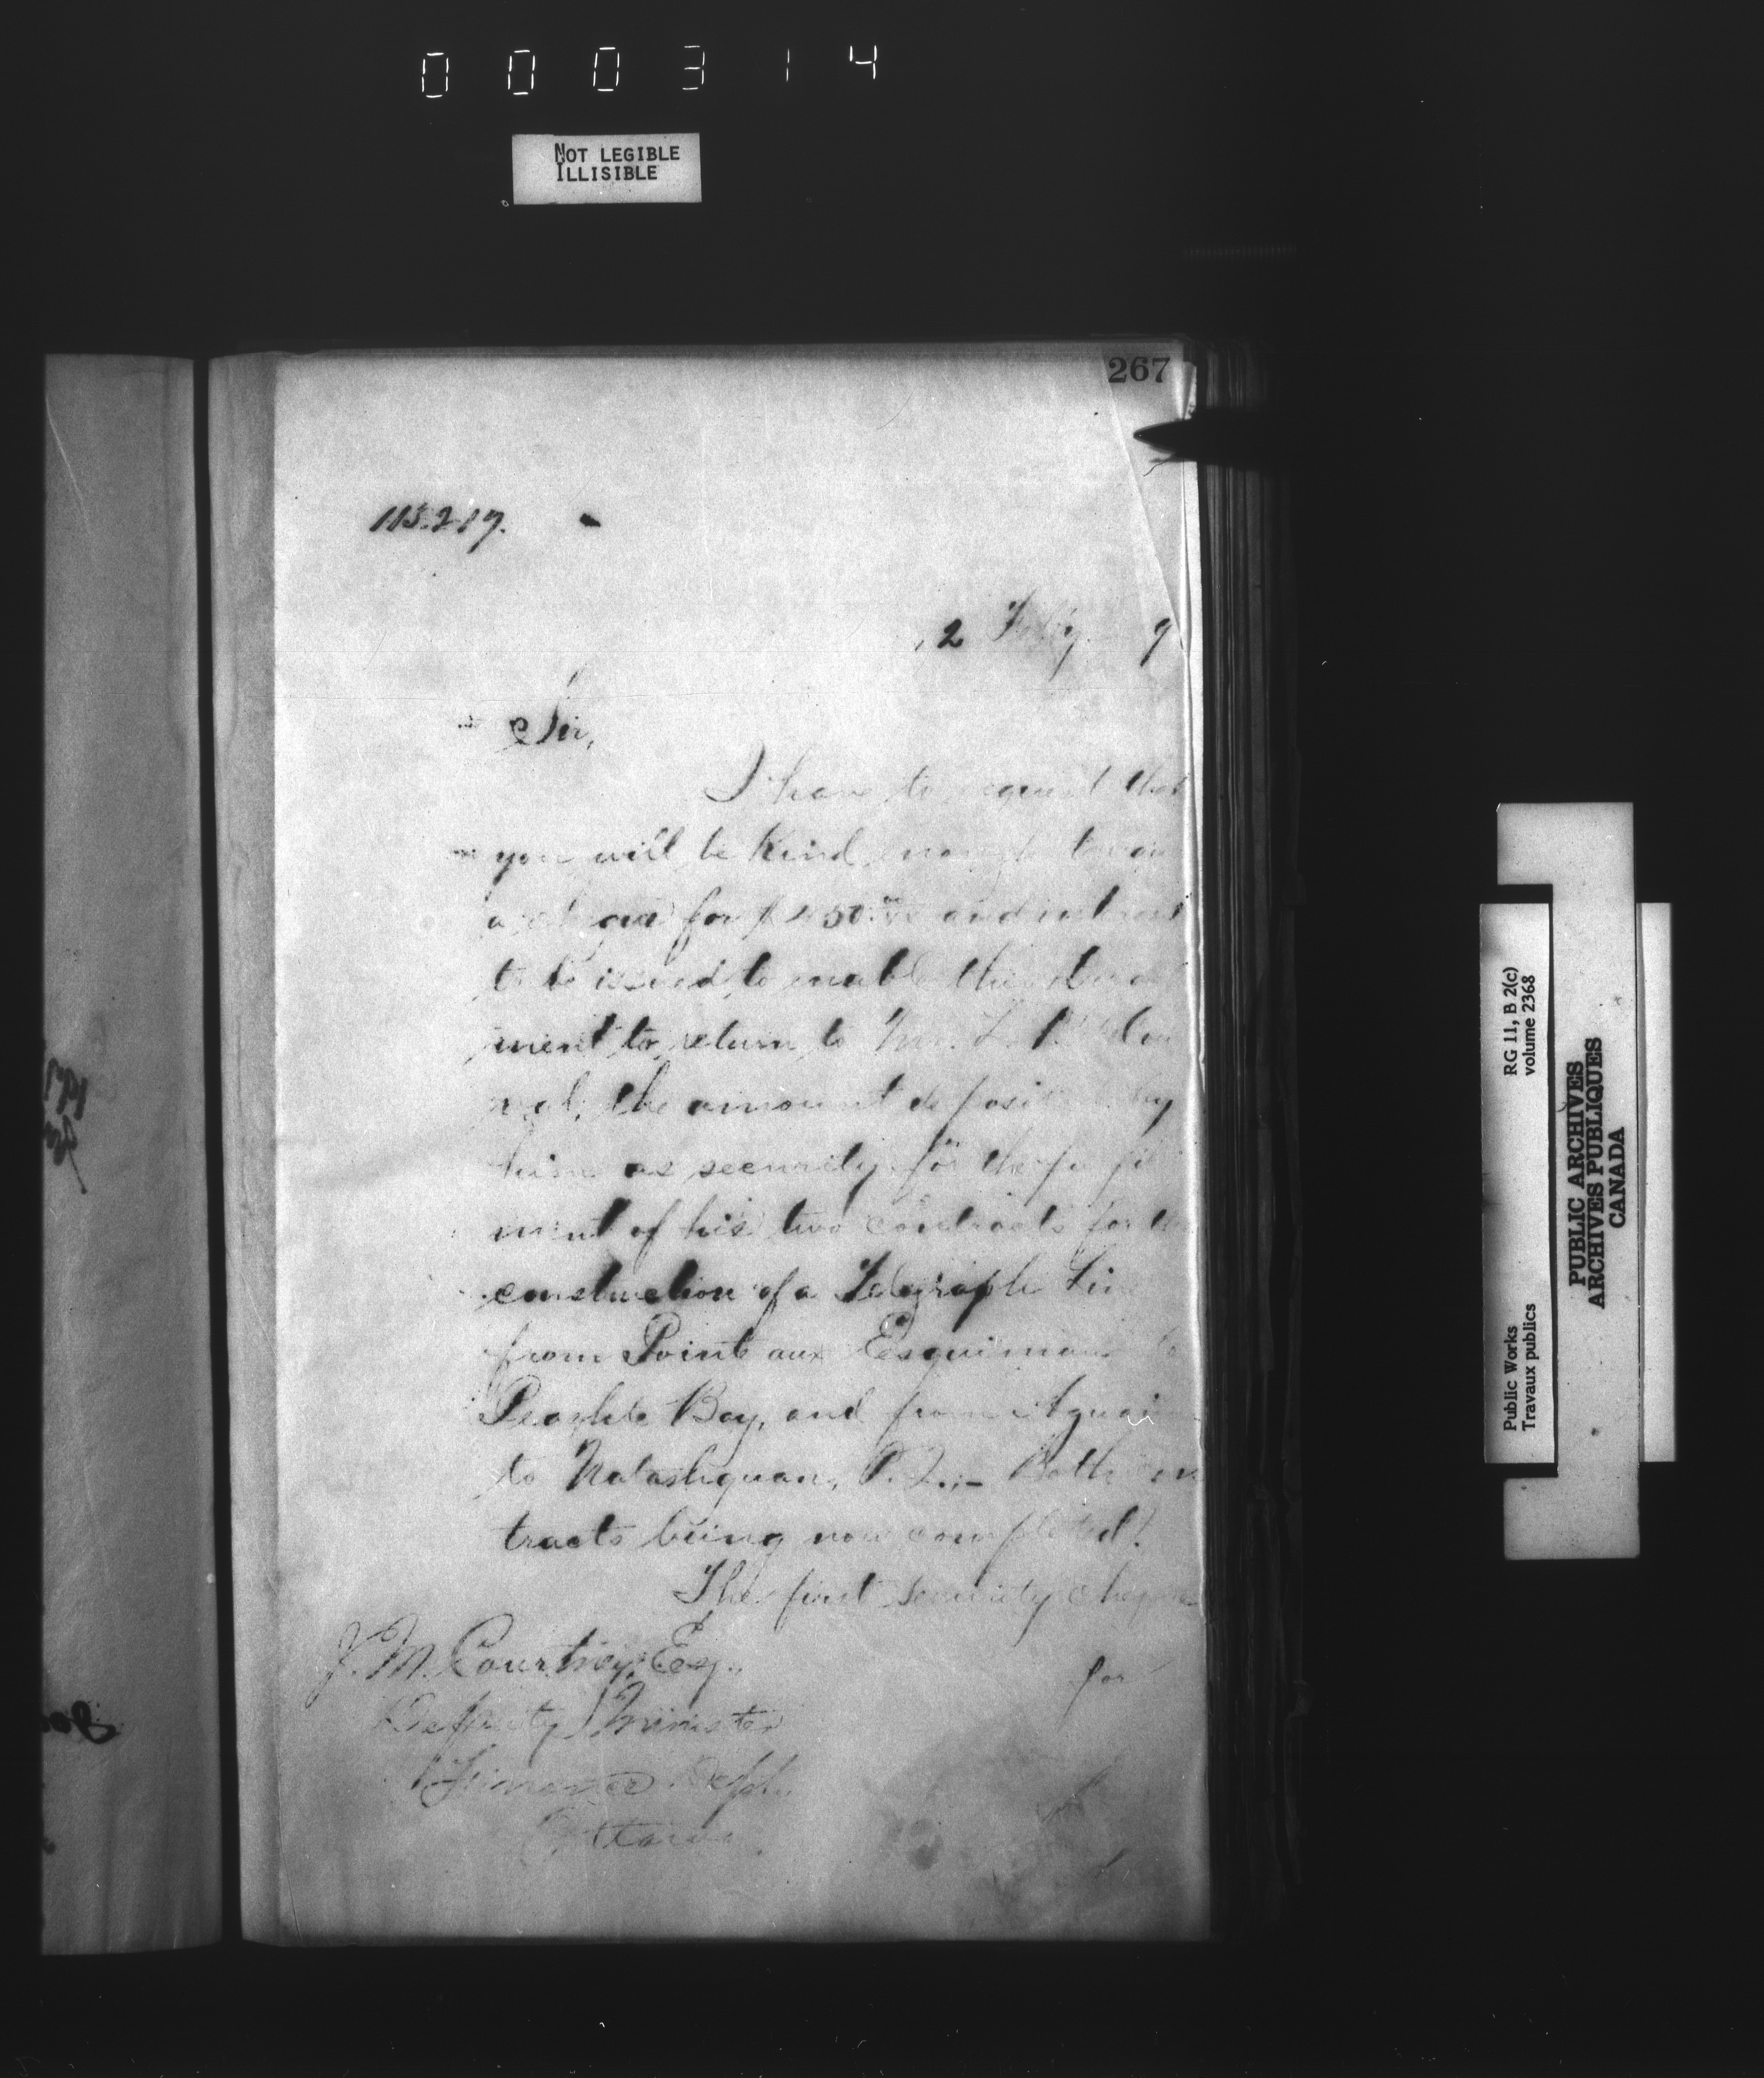 000314
NOT LEGIBLE
ILLISIBLE
267
115.217.
2 Feby. 9
Sir,
I have to request that
you will be kind enough to
a for and interest
to be issued to enable this
ment to return to Mr.
the amount deposited by
him as security for the
ment of his two contracts for the
construction of a Telegraph Line
from Point aux Esquimaux to
Bay, and from
to Natashquan, P.Q.;- Both con
tracts being now completed.
The first security cheque
for
J. M. Courtney, Esq.
Deputy Minister
Finance Dept.
Ottawa.
Public Works
Travaux publics
RG 11, B 2(c)
volume 2368
PUBLIC ARCHIVES
ARCHIVES PUBLIQUES
CANADA